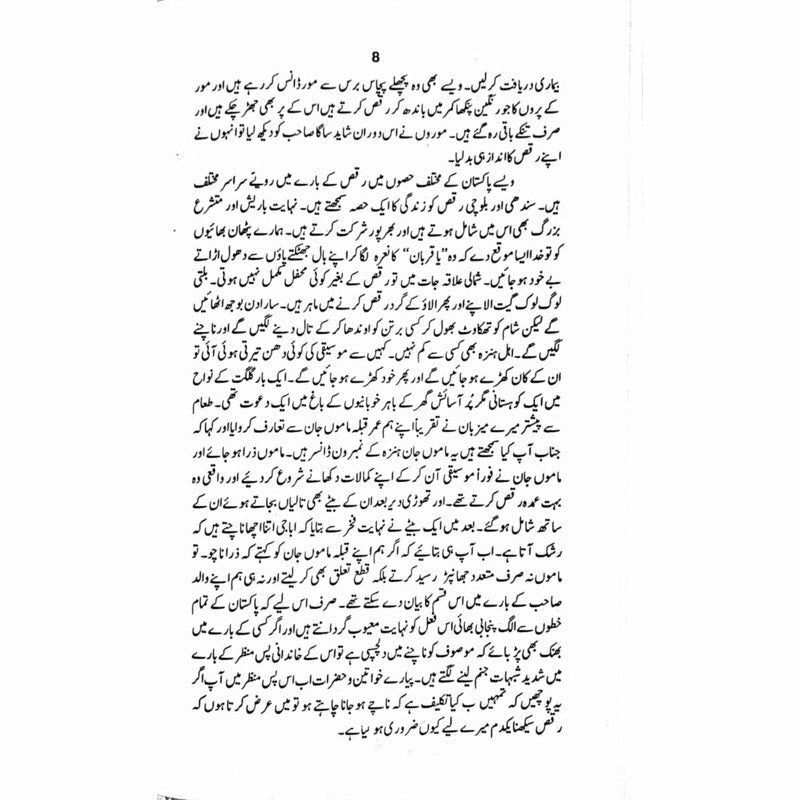 8
بیماری دریافت کر لیں۔ ویسے بھی وہ پچھلے پچاس برس سے مور ڈانس کر رہے ہیں اور مور
کے پروں کا جو رنگین پنکھا کمر میں باندھ کر رقص کرتے ہیں اس کے پر بھی جھڑ چکے ہیں اور
صرف تنکے باقی رہ گئے ہیں۔ موروں نے اس دوران شاید ساگا صاحب کو دیکھ لیا تو انہوں نے
اپنے رقص کا انداز ہی بدل لیا۔
ویسے پاکستان کے مختلف حصوں میں رقص کے بارے میں رویّے سراسر مختلف
ہیں۔ سندھی اور بلوچی رقص کو زندگی کا ایک حصہ سمجھتے ہیں۔ نہایت باریش اور متشرع
بزرگ بھی اس میں شامل ہوتے ہیں اور بھرپور شرکت کرتے ہیں۔ ہمارے پٹھان بھائیوں
کو تو خدا ایسا موقع دے کہ وہ ”یا قربان“ کا نعرہ لگا کر اپنے بال جھٹکتے پاؤں سے دھول اڑاتے
بے خود ہو جائیں۔ شمالی علاقہ جات میں تو رقص کے بغیر کوئی محفل مکمل نہیں ہوتی۔ بلتی
لوگ لوک گیت الاپنے اور پھر الاؤ کے گرد رقص کرنے میں ماہر ہیں۔ سارا دن بوجھ اٹھائیں
گے لیکن شام کو تھکاوٹ بھول کر کسی برتن کو اوندھا کر کے تال دینے لگیں گے اور ناچنے
لگیں گے۔ اہل ہنزہ بھی کسی سے کم نہیں۔ کہیں سے موسیقی کی کوئی دھن تیرتی ہوئی آئی تو
ان کے کان کھڑے ہو جائیں گے اور پھر خود کھڑے ہو جائیں گے۔ ایک بار گلگت کے نواح
میں ایک کوہستانی مگر پُر آسائش گھر کے باہر خوبانیوں کے باغ میں ایک دعوت تھی۔ طعام
سے پیشتر میرے میزبان نے تقریباً اپنے ہم عمر قبلہ ماموں جان سے تعارف کروایا اور کہا کہ
جناب آپ کیا سمجھتے ہیں یہ ماموں جان ہنزہ کے نمبر ون ڈانسر ہیں۔ ماموں ذرا ہو جائے اور
ماموں جان نے فوراً موسیقی آن کر کے اپنے کمالات دکھانے شروع کر دیئے اور واقعی وہ
بہت عمدہ رقص کرتے تھے۔ اور تھوڑی دیر بعد ان کے بیٹے بھی تالیاں بجاتے ہوئے ان کے
ساتھ شامل ہو گئے۔ بعد میں ایک بیٹے نے نہایت فخر سے بتایا کہ ابا جی اتنا اچھا ناچتے ہیں کہ
رشک آتا ہے۔ اب آپ ہی بتائیے کہ اگر ہم اپنے قبلہ ماموں جان کو کہتے کہ ذرا ناچو۔ تو
ماموں نہ صرف متعدد جھانپڑ رسید کرتے بلکہ قطع تعلق بھی کر لیتے اور نہ ہی ہم اپنے والد
صاحب کے بارے میں اس قسم کا بیان دے سکتے تھے۔ صرف اس لیے کہ پاکستان کے تمام
خطوں سے الگ پنجابی بھائی اس فعل کو نہایت معیوب گردانتے ہیں اور اگر کسی کے بارے میں
بھنک بھی پڑ جائے کہ موصوف کو ناچنے میں دلچسپی ہے تو اس کے خاندانی پس منظر کے بارے
میں شدید شبہات جنم لینے لگتے ہیں۔ پیارے خواتین و حضرات اب اس پس منظر میں آپ اگر
یہ پوچھیں کہ تمہیں کیا تکلیف ہے کہ ناچے ہو جانا چاہتے ہو تو میں عرض کرتا ہوں کہ
رقص سیکھنا یکدم میرے لیے کیوں ضروری ہو گیا ہے۔